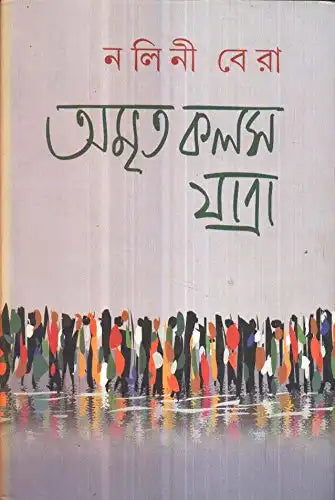 নলিনী বেরা
অমৃত কলস
যাত্রা